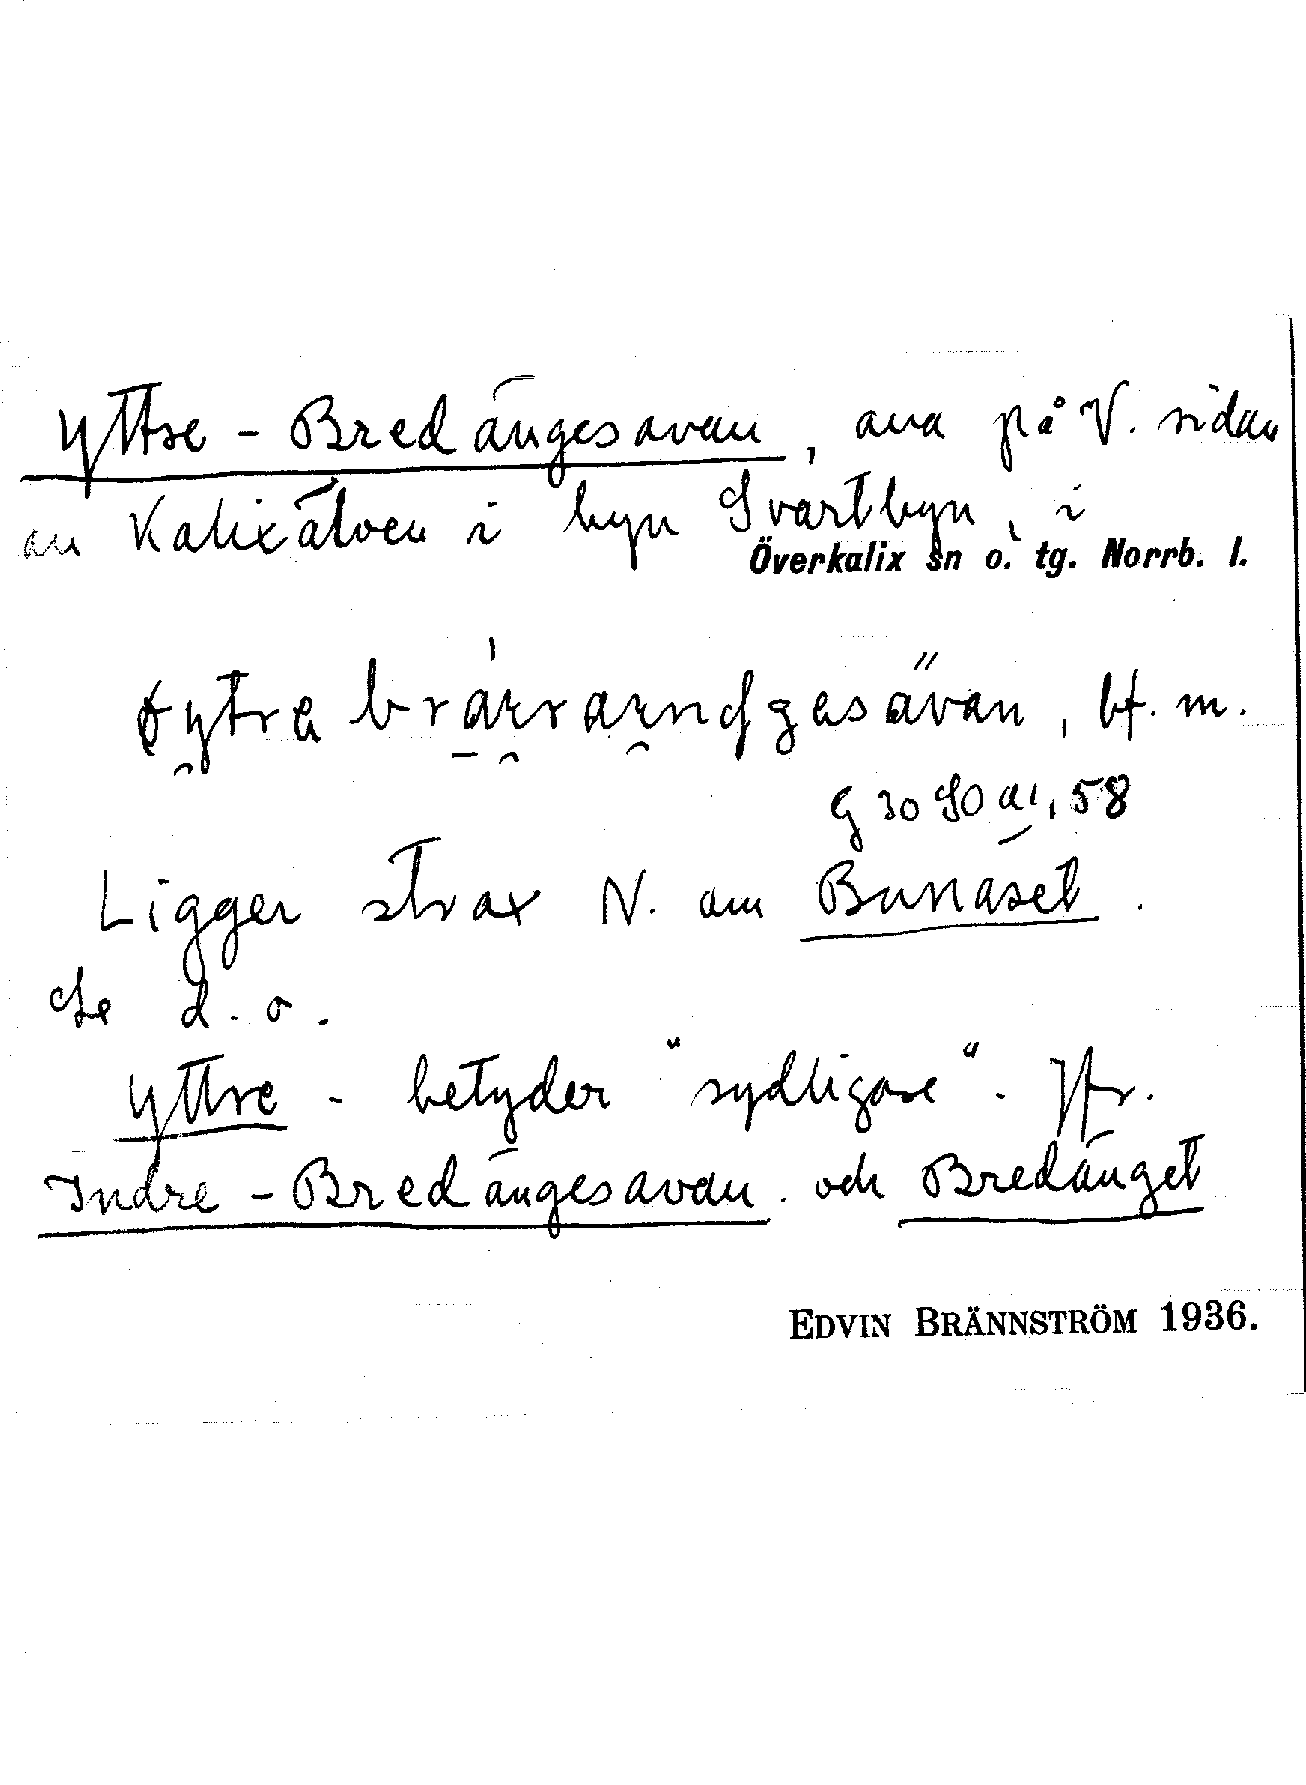 Yttre - Bredängesavan, ava på V. sidan
om Kalixälven i byn Svartbyn, i
Överkalix sn o. tg. Norrb. l.
bf. m.
G 30 SO a1, 58
Ligger strax N. om Bunäset.
Se d. o.
Yttre - betyder "sydligare". Jfr.
Indre - Bredängesavan. och Bredänget
EDVIN BRÄNNSTRÖM 1936.